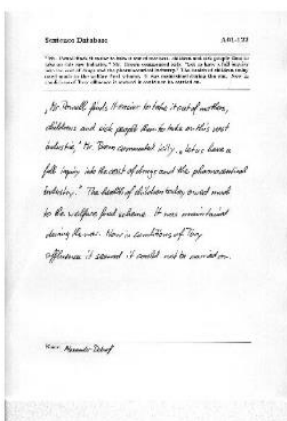 Sentence Database A01-122
"Mr. Powell finds it easier to take it out of mothers, children and sick people than to
take on this vast industry," Mr. Brown commented icily. "Let us have a full inquiry
into the cost of drugs and the pharmaceutical industry." The health of children today
owed much to the welfare food scheme. It was maintained during the war. Now in
conditions of Tory affluence it seemed it could not be carried on.
„Mr. Powell finds it easier to take it out of mothers,
children and sick people than to take on this vast
industry," Mr. Brown commented icily. „Let us have a
full inquiry into the cost of drugs and the pharmaceutical
industry." The health of children today owed much
to the welfare food scheme. It was maintained
during the war. Now in conditions of Tory
affluence it seemed it could not be carried on.
Name: Alexander